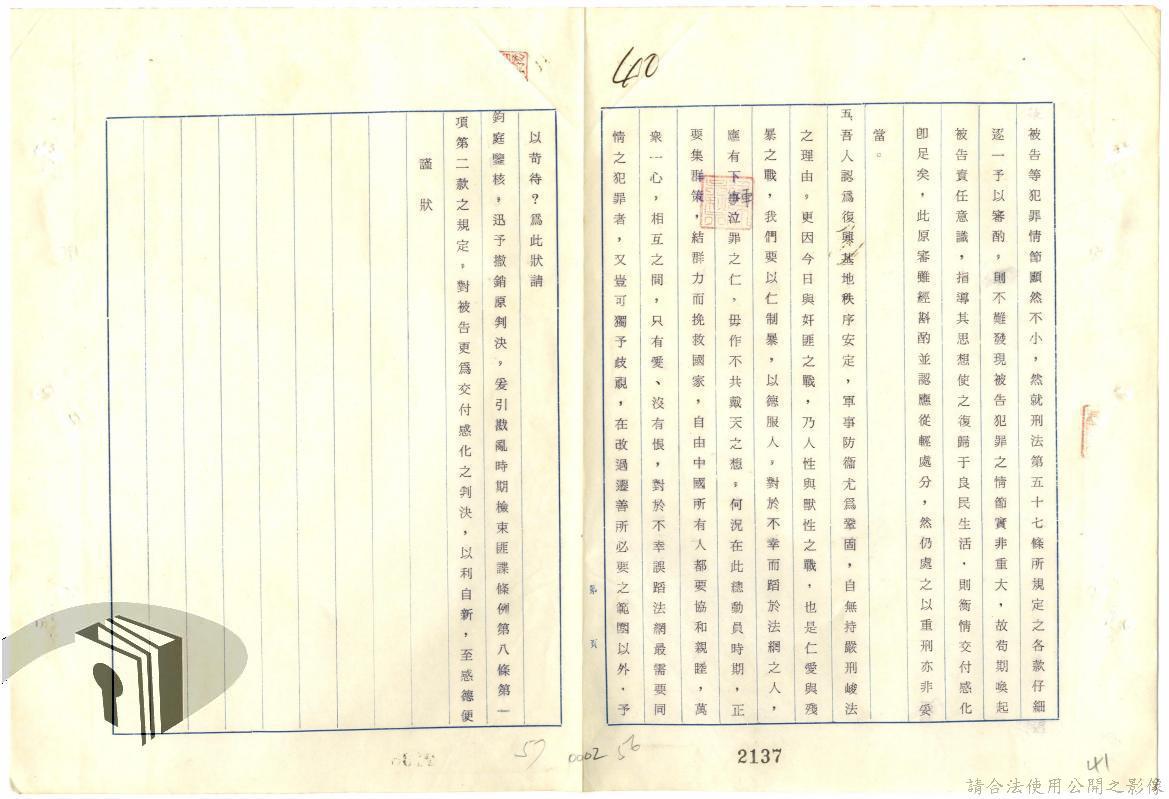 40
被告等犯罪情節顯然不小，然就刑法第五十七條所規定之各款仔細
逐一予以審酌，則不難發現被告犯罪之情節實非重大，故苟期喚起
被告責任意識，指導其思想使之復歸于良民生活，則衡情交付感化
卽足矣，此原審雖經斟酌並認應從輕處分，然仍處之以重刑亦非妥
當。
五、吾人認爲復興基地秩序安定，軍事防衞尤爲鞏固，自無持嚴刑峻法
之理由。更因今日與奸匪之戰，乃人性與獸性之戰，也是仁愛與殘
暴之戰，我們要以仁制暴，以德服人，對於不幸而蹈於法網之人，
應有下車泣罪之仁，毋作不共戴天之想。何況在此總動員時期，正
要集群策，結群力而挽救國家，自由中國所有人都要協和親睦，萬
衆一心，相互之間，只有愛、沒有恨，對於不幸誤蹈法網最需要同
情之犯罪者，又豈可獨予歧視，在改過遷善所必要之範圍以外，予
第　頁
以苛待？爲此狀請
鈞庭鑒核，迅予撤銷原判決，爰引戡亂時期檢束匪諜條例第八條第一
項第二款之規定，對被告更爲交付感化之判決，以利自新，至感德便
謹狀
57
0002
56
2137
41
請合法使用公開之影像